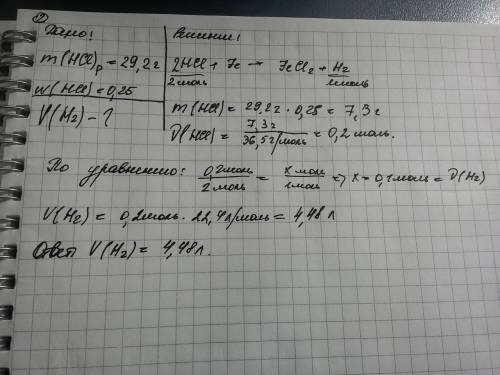 ②
Дано:
m(HCl)р = 29,2г
w(HCl) = 0,25
V(H₂) - ?
Решение:
2HCl + Fe → FeCl₂ + H₂
2моль 1моль
m(HCl) = 29,2г · 0,25 = 7,3г
ν(HCl) = 7,3г / 36,5г/моль = 0,2 моль.
По уравнению: 0,2моль / 2моль = x моль / 1моль => x = 0,1моль = ν(H₂)
V(H₂) = 0,2моль · 22,4л/моль = 4,48л
Ответ V(H₂) = 4,48л.